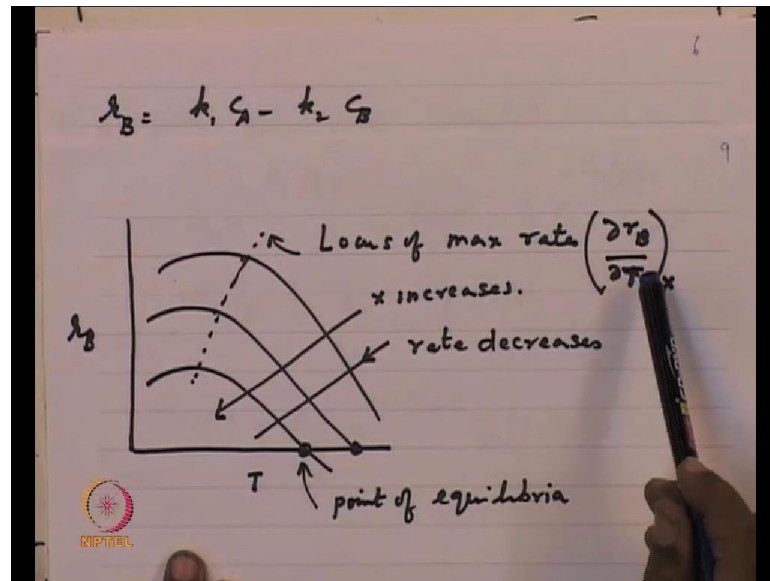 6
r_B = k₁ C_A - k₂ C_B
9
Locus of max rate (∂r_B/∂T)_x
x increases.
rate decreases
r_B
T
point of equilibria
NPTEL